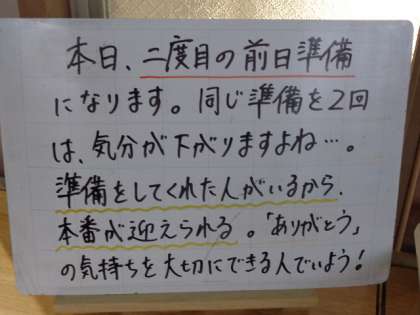 本日、二度目の前日準備
になります。同じ準備を2回
は、気分が下がりますよね…。
準備をしてくれた人がいるから、
本番が迎えられる。「ありがとう」
の気持ちを大切にできる人でいよう!